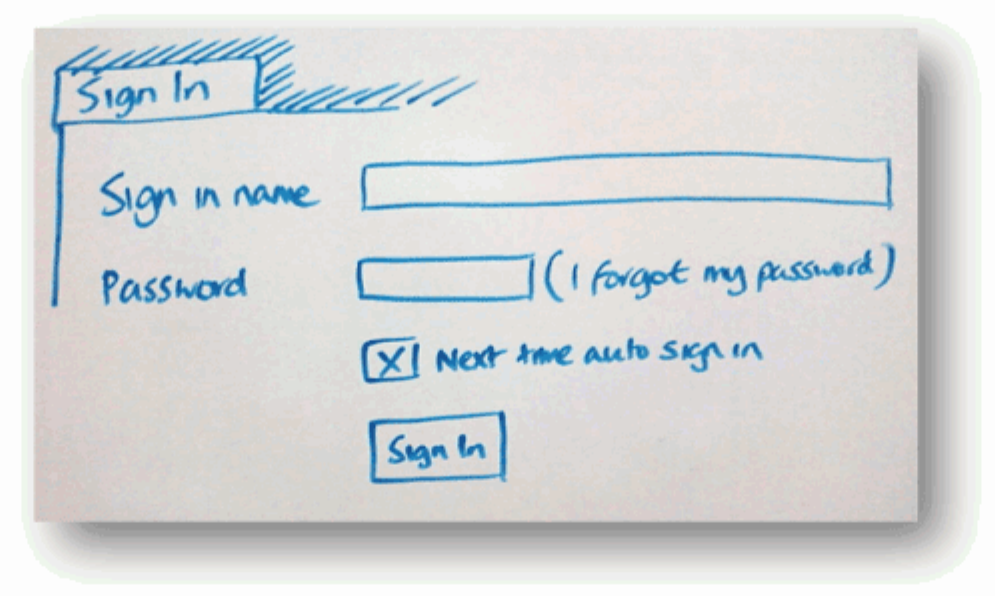 Sign In
Sign in name
Password (I forgot my password)
X Next time auto sign in
Sign In